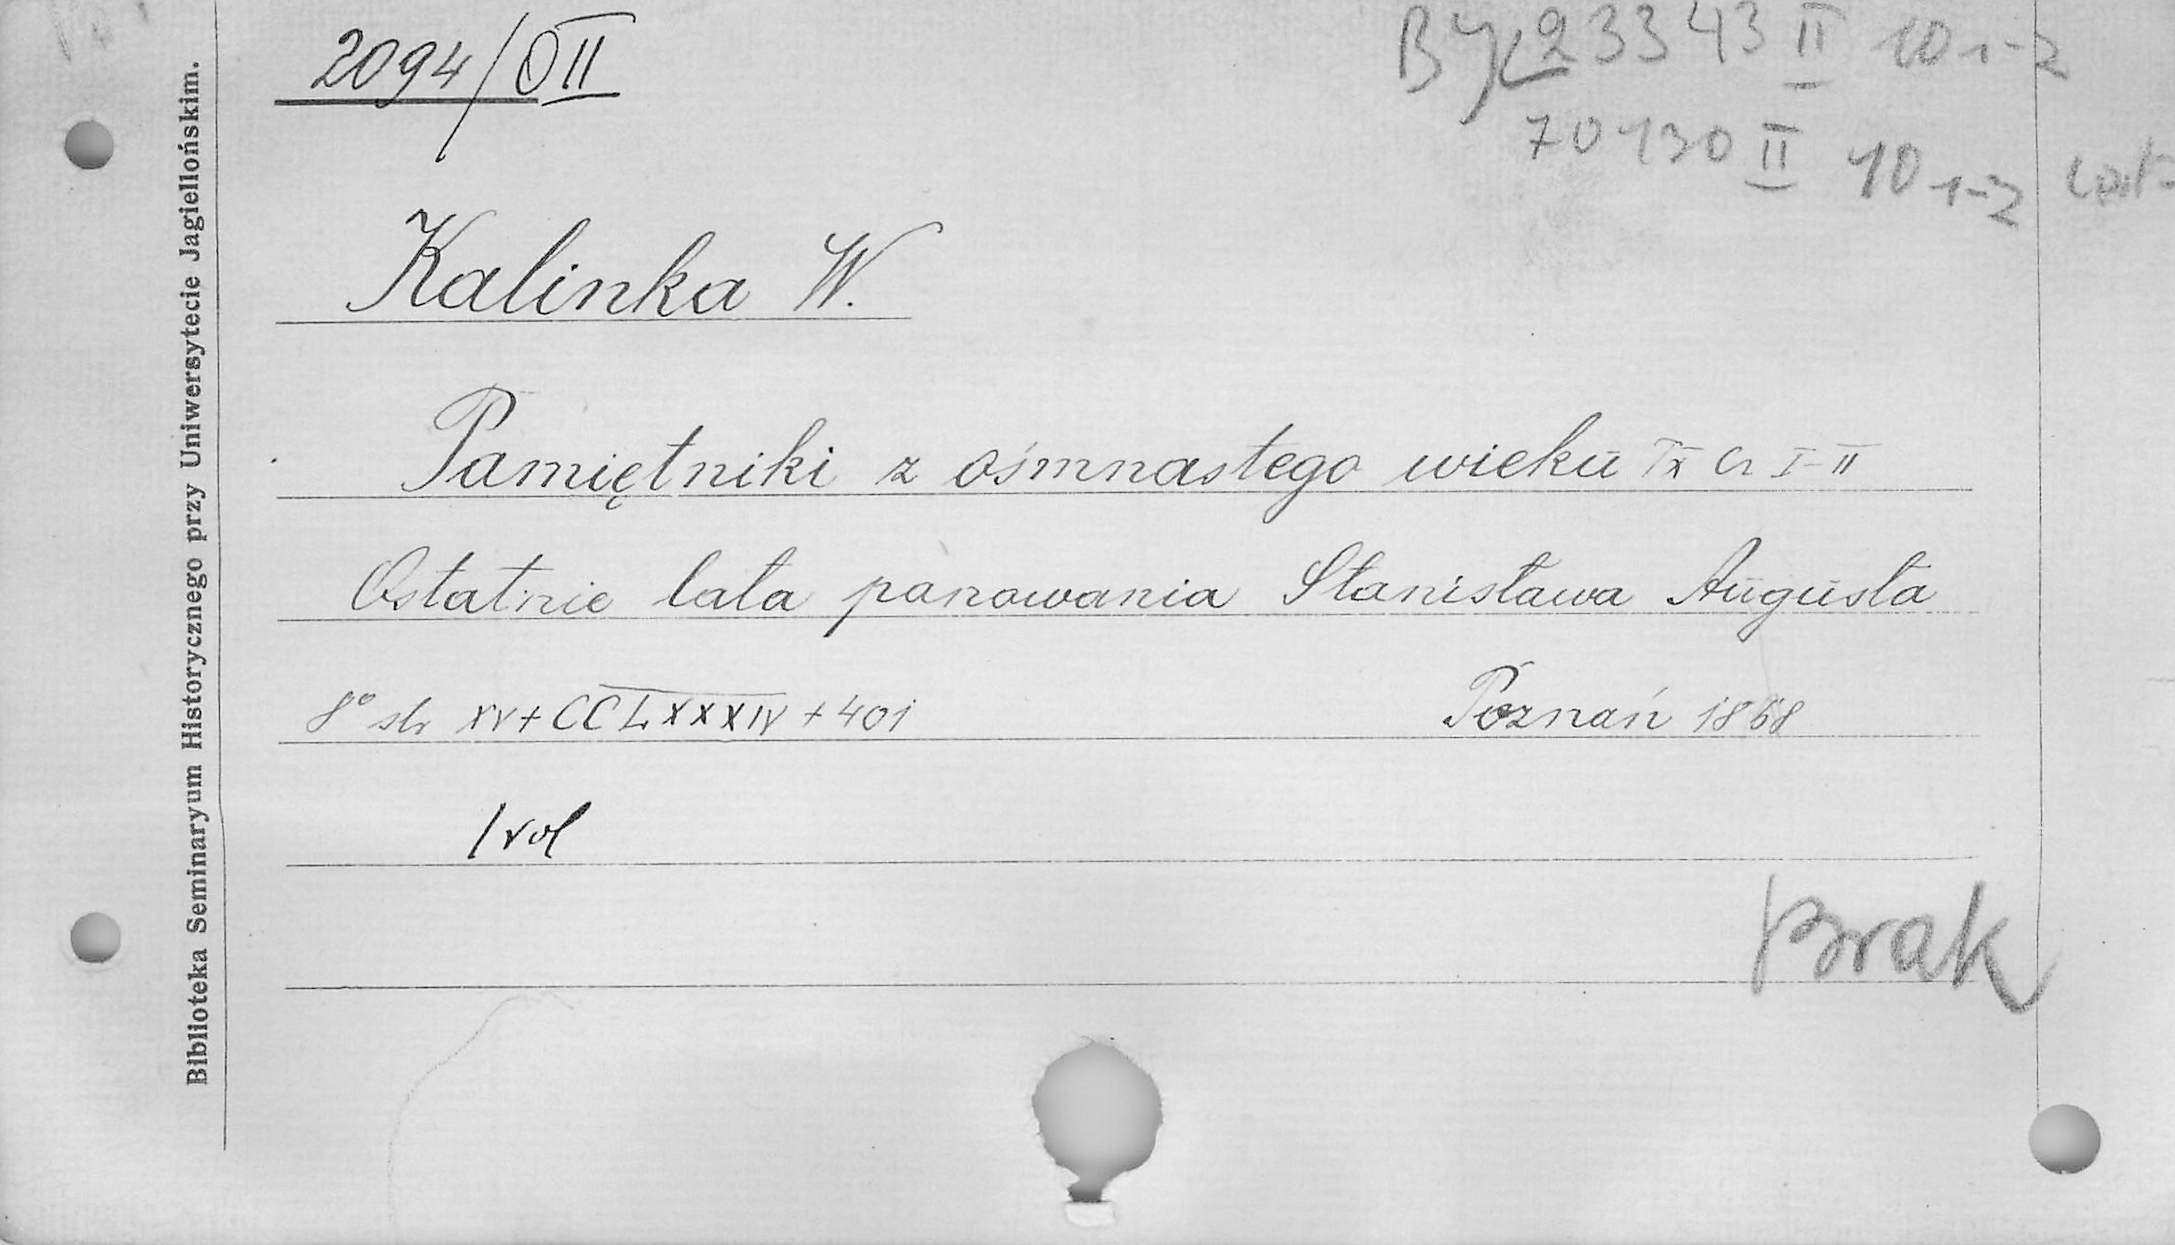 2094/OII
BJ 23343 II 10 1-2
70130 II 10 1-2
Kalinka W.
Pamiętniki z ośmnastego wieku T X Cz I-II
Ostatnie lata panowania Stanisława Augusta
8° str XV+CCLXXXIV+401 Poznań 1868
1 vol
Brak
Biblioteka Seminaryum Historycznego przy Uniwersytecie Jagiellońskim.